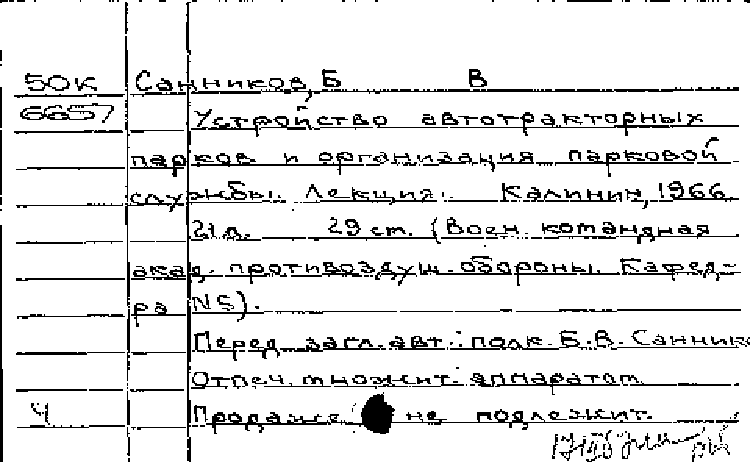 50К Санников, Б В
6657 Устройство автотракторных
парков и организация парковой
службы. Лекция. Калинин, 1966.
21 л. 29 см. (Воен. командная
акад. противоздуш. обороны. Кафед-
ра №5).
Перед загл. авт.: полк. Б.В. Санник
Отпеч. множит. аппаратом.
Ч Продаже не подлежит.